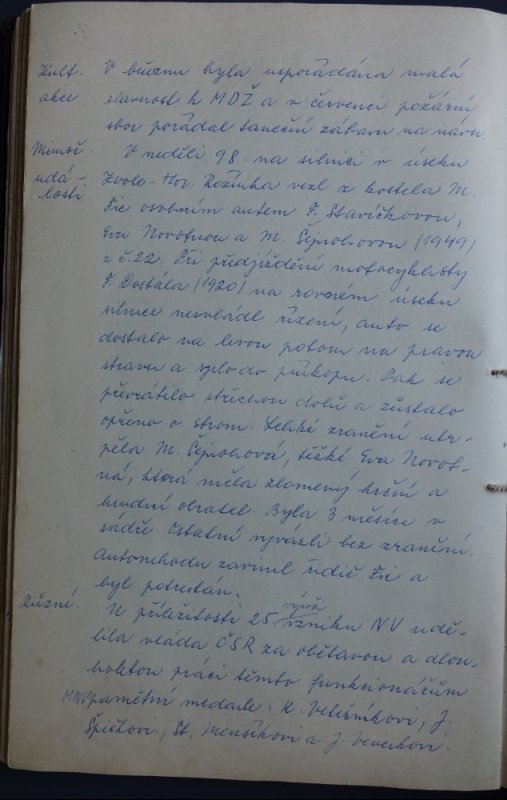 Kult. V březnu byla uspořádána malá
akce slavnost k MDŽ a v červenci požární
sbor pořádal taneční zábavu na návsi.
Mimoř. V neděli 9.8. na silnici v úseku
udá- Zvole-Hor. Rožínka vezl z kostela M.
losti Fic osobním autem F. Slavíčkovou,
Eva Novotnou a M. Šejnohovou (1949)
z č. 22. Při předjíždění motocyklisty
F. Dostála (1920) na rovném úseku
silnice nesvládl řízení, auto se
dostalo na levou potom na pravou
stranu a sjelo do příkopu. Pak se
převrátilo střechou dolů a zůstalo
opřeno o strom. Lehké zranění utr-
pěla M. Šejnohová, těžké Eva Novot-
ná, která měla zlomený krční a
hrudní obratel. Byla 3 měsíce v
sádře. Ostatní vyvázli bez zranění.
Autonehodu zavinil řidič Fic a
byl potrestán.
Různé. U příležitosti 25. výročí vzniku NV udě-
lila vláda ČSR za obětavou a dlou-
holetou práci těmto funkcionářům
MNV pamětní medaile: K. J.
Špičkovi, St. Menšíkovi a J.